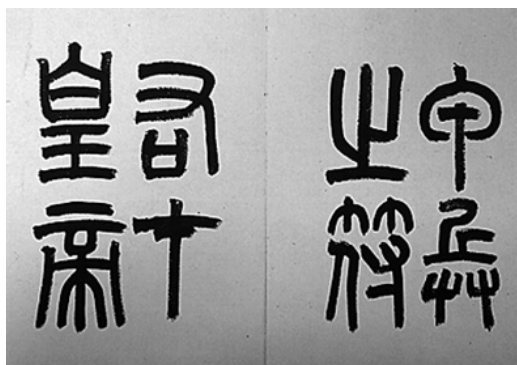 甲兵
之符
右才
皇帝